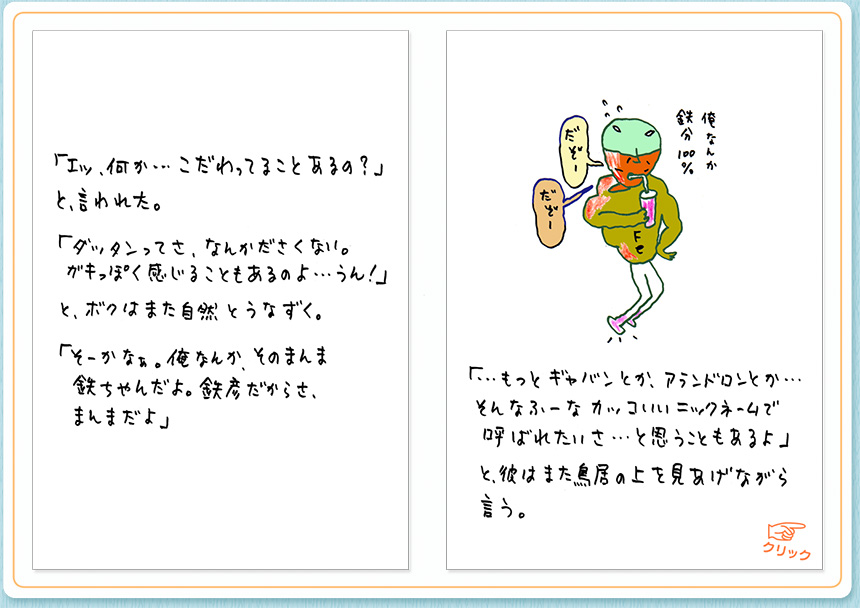 「エッ、何か…こだわってることあるの？」
と、言われた。
「ダッタンってさ、なんかださくない。
ガキっぽく感じることもあるのよ…うん！」
と、ボクはまた自然とうなずく。
「そーかなぁ。俺なんか、そのまんま
鉄ちゃんだよ。鉄彦だからさ、
まんまだよ」
俺なんか
鉄分
100%
だぞー
だぞー
Fe
「…もっとギャバンとか、アランドロンとか…
そんなふーなカッコいいニックネームで
呼ばれたいさ…と思うこともあるよ」
と、彼はまた鳥居の上を見あげながら
言う。
クリック